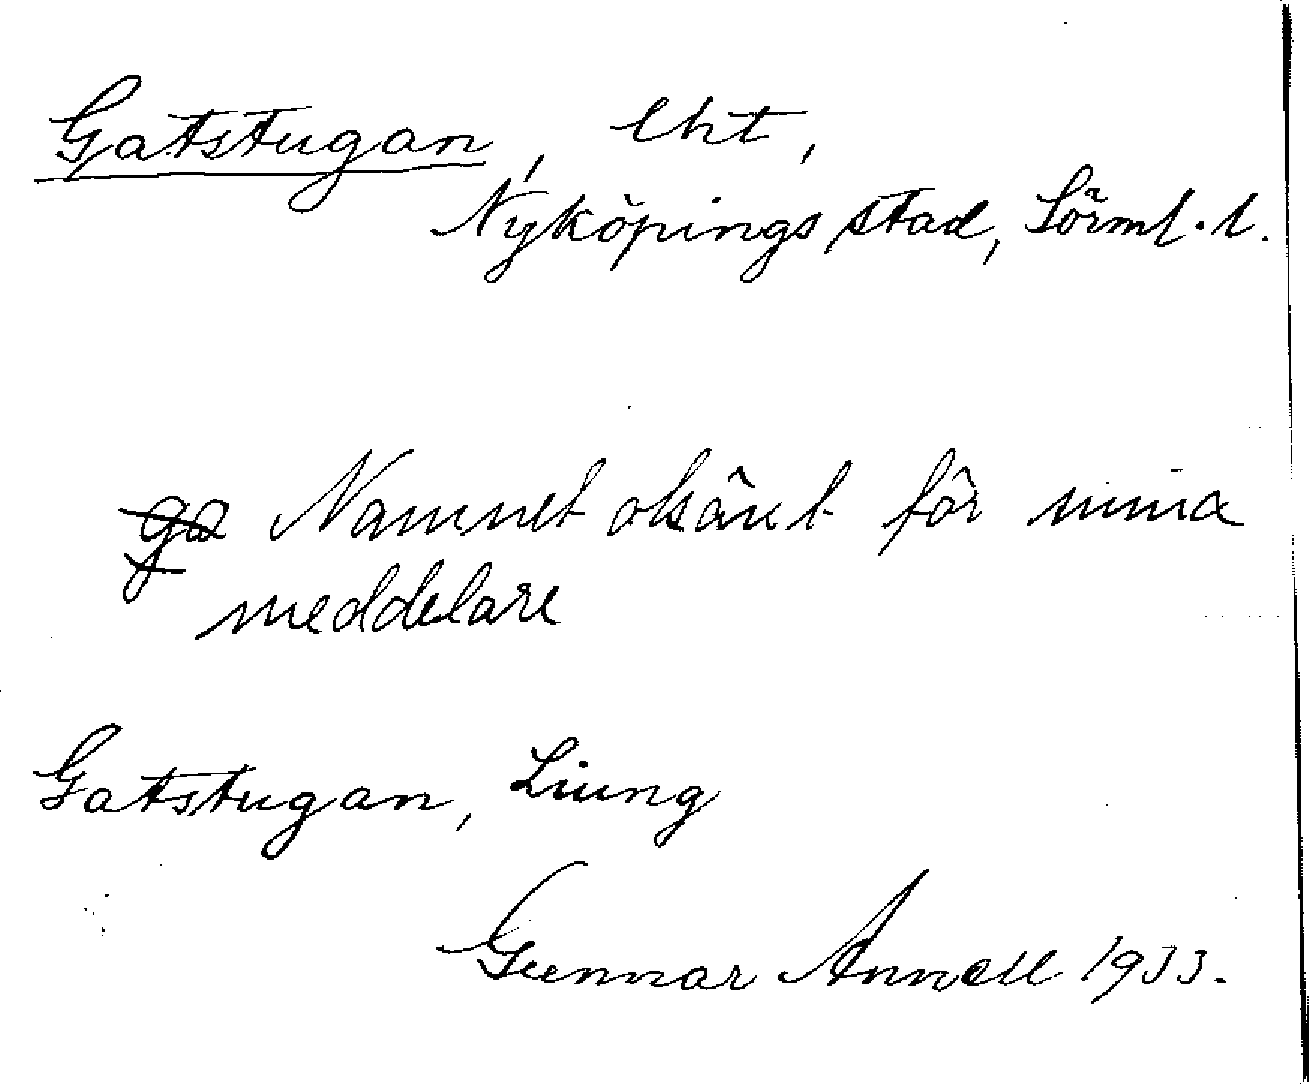 Gatstugan, lht,
Nyköpings stad, Sörml. l.
ga Namnet okänt för mina
meddelare
Gatstugan, Liung
Gunnar Annell 1933.